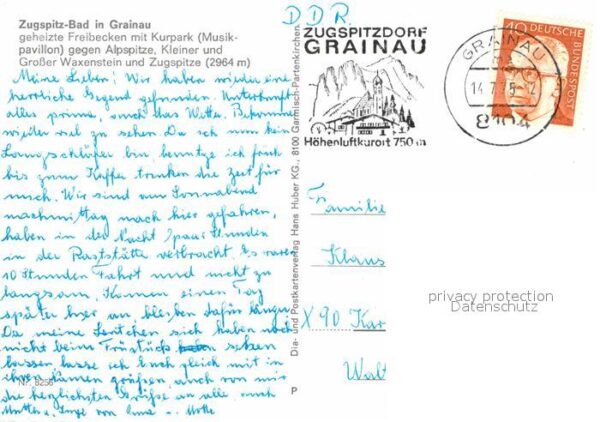 Zugspitz-Bad in Grainau
geheizte Freibecken mit Kurpark (Musik-
pavillon) gegen Alpspitze, Kleiner und
Großer Waxenstein und Zugspitze (2964 m)
Meine Lieben! Wir haben wieder eine
herrliche Gegend gefunden. Unterkunft
alles prima, auch das Wetter. Bekommen
wieder viel zu sehen. Da ich nun kein
Langschläfer bin benutze ich früh
bis zum Kaffee trinken die Zeit für
mich. Wir sind am Sonnabend
nachmittag nach hier gefahren,
haben in der Nacht paar Stunden
in der Raststätte verbracht. Es waren
10 Stunden Fahrt und nicht zu
langsam. Kamen einen Tag
später hier an, bleiben dafür länger
Da meine Leutchen sich haben
nicht beim Frühstück sehen
lassen lasse ich Euch gleich mit in
ihren Namen grüßen, auch von mir
die herzlichsten Grüße an alle, auch
Mutter u. Inge von
Nr. 8256
Dia- und Postkartenverlag Hans Huber KG., 8100 Garmisch-Partenkirchen
P
DDR
ZUGSPITZDORF
GRAINAU
Höhenluftkurort 750 m
GRAINAU
14.7.75
8104
40
DEUTSCHE
BUNDESPOST
Familie
Klaus
X 90 Kar
Walt
privacy protection
Datenschutz